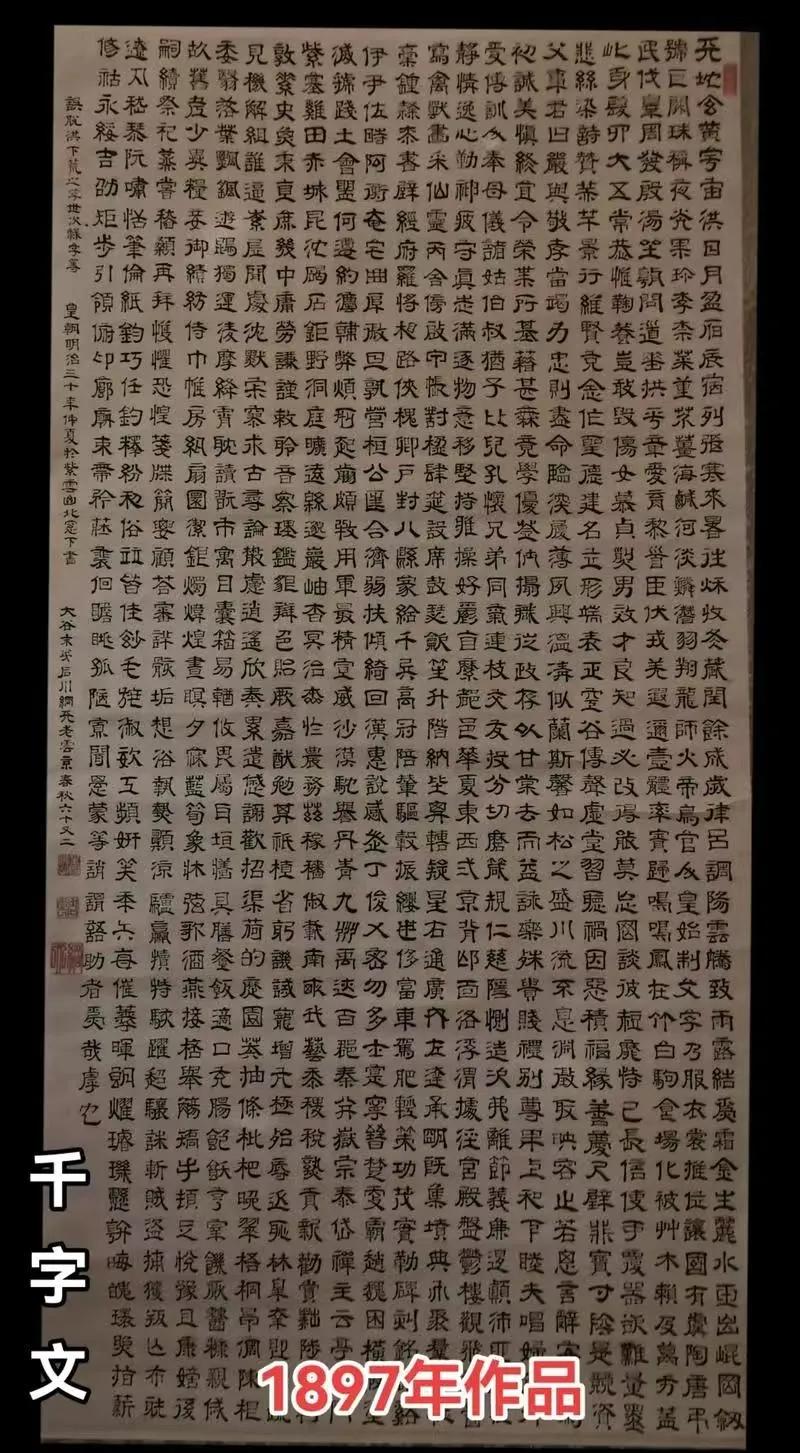 天地玄黃宇宙洪日月盈昃辰宿列張寒來暑往秋收冬藏閏餘成歲律呂調陽雲騰致雨露結爲霜金生麗水玉出崐岡劍
號巨闕珠稱夜光果珍李柰菜重芥薑海鹹河淡鱗潛羽翔龍師火帝鳥官人皇始制文字乃服衣裳推位讓國有虞陶唐弔
民伐辠周發殷湯坐朝問道垂拱平章愛育黎首臣伏戎羌遐邇壹體率賓歸鳳在竹白駒食場化被艸木賴及萬方蓋
此身髮四大五常恭惟鞠養豈敢毀傷女慕貞潔男效才良知過必改得能莫忘罔談彼短靡恃己長信使可覆器欲難量墨
悲絲染詩讚羔羊景行維賢克念作聖德建名立形端表正空谷傳聲虛堂習聽禍因惡積福緣善慶尺璧非寶寸陰是競資
父事君曰嚴與敬孝當竭力忠則盡命臨深履薄夙興溫凊似蘭斯馨如松之盛川流不息淵澂取映容止若思言辭
初誠美慎終宜令榮業所基藉甚無竟學優登仕攝職從政存以甘棠去而益詠樂殊貴賤禮別尊卑上和下睦夫唱婦
受傅訓入奉母儀諸姑伯叔猶子比兒孔懷兄弟同氣連枝交友投分切磨箴規仁慈隱惻造次弗離節義廉退顛沛匪
靜情逸心動神疲守真志滿逐物意移堅持雅操好爵自縻都邑華夏東西二京背邙面洛浮渭據涇宮殿盤鬱樓觀飛
寫禽獸畫采仙靈丙舍傍啟甲帳對楹肆筵設席鼓瑟吹笙升階納陛弁轉疑星右通廣內左達承明既集墳典亦聚羣
稾鍾隸漆書壁經府羅將相路俠槐卿戶封八縣家給千兵高冠陪輦驅轂振纓世侈富車駕肥輕策功茂實勒碑刻銘
伊尹佐時阿衡奄宅曲阜微旦孰營桓公匡合濟弱扶傾綺回漢惠說感武丁俊乂密勿多士寔寧晉楚更霸趙魏困橫
滅虢踐土會盟何遵約法韓弊煩刑起翦頗牧用軍最精宣威沙漠馳譽丹青九州禹迹百郡秦并嶽宗泰岱禪主云亭
紫塞雞田赤城昆池碣石鉅野洞庭曠遠緜邈巖岫杳冥治本於農務茲稼穡俶載南畝我藝黍稷稅熟貢新勸賞黜陟
敦素史魚秉直庶幾中庸勞謙謹敕聆音察理鑑貌辨色貽厥嘉猷勉其祗植省躬譏誡寵增亢極殆辱近恥林皋幸即
見機解組誰逼索居閒處沈默宗寥求古尋論散慮逍遙欣奏累遣慼謝歡招渠荷的歷園莽抽條枇杷晚翠梧桐早凋陳根
委翳落葉飄颻遊鵾獨運凌摩絳霄耽讀翫市寓目囊箱易輶攸畏屬耳垣牆具膳餐飯適口充腸飽飫亨宰饑厭糟糠親戚
故舊老少異糧妾御績紡侍巾帷房紈扇圓潔銀燭煒煌晝瞑夕寐藍筍象牀弦歌酒燕接杯舉觴矯手頓足悅豫且康嫡後
嗣續祭祀蒸嘗稽顙再拜悚懼恐惶箋牒簡要顧荅審詳骸垢想浴執熱願涼驢騾犢特駭躍超驤誅斬賊盜捕獲叛亡布射
遼丸嵇琴阮嘯恬筆倫紙鈞巧任釣釋紛利俗竝皆佳妙毛施淑姿工顰妍笑年矢每催羲暉朗耀璇璣懸斡晦魄環照指薪
修祜永綏吉劭矩步引領俯仰廊廟束帶矜莊裴回瞻眺孤陋寡聞愚蒙等誚謂語助者焉哉虖也
誤脫洪下荒之字世次祿字
皇朝明治三十年仲夏於紫雲山北窓下書
大谷末學石川綱天老雲景春秋六十又二
千字文
1897年作品